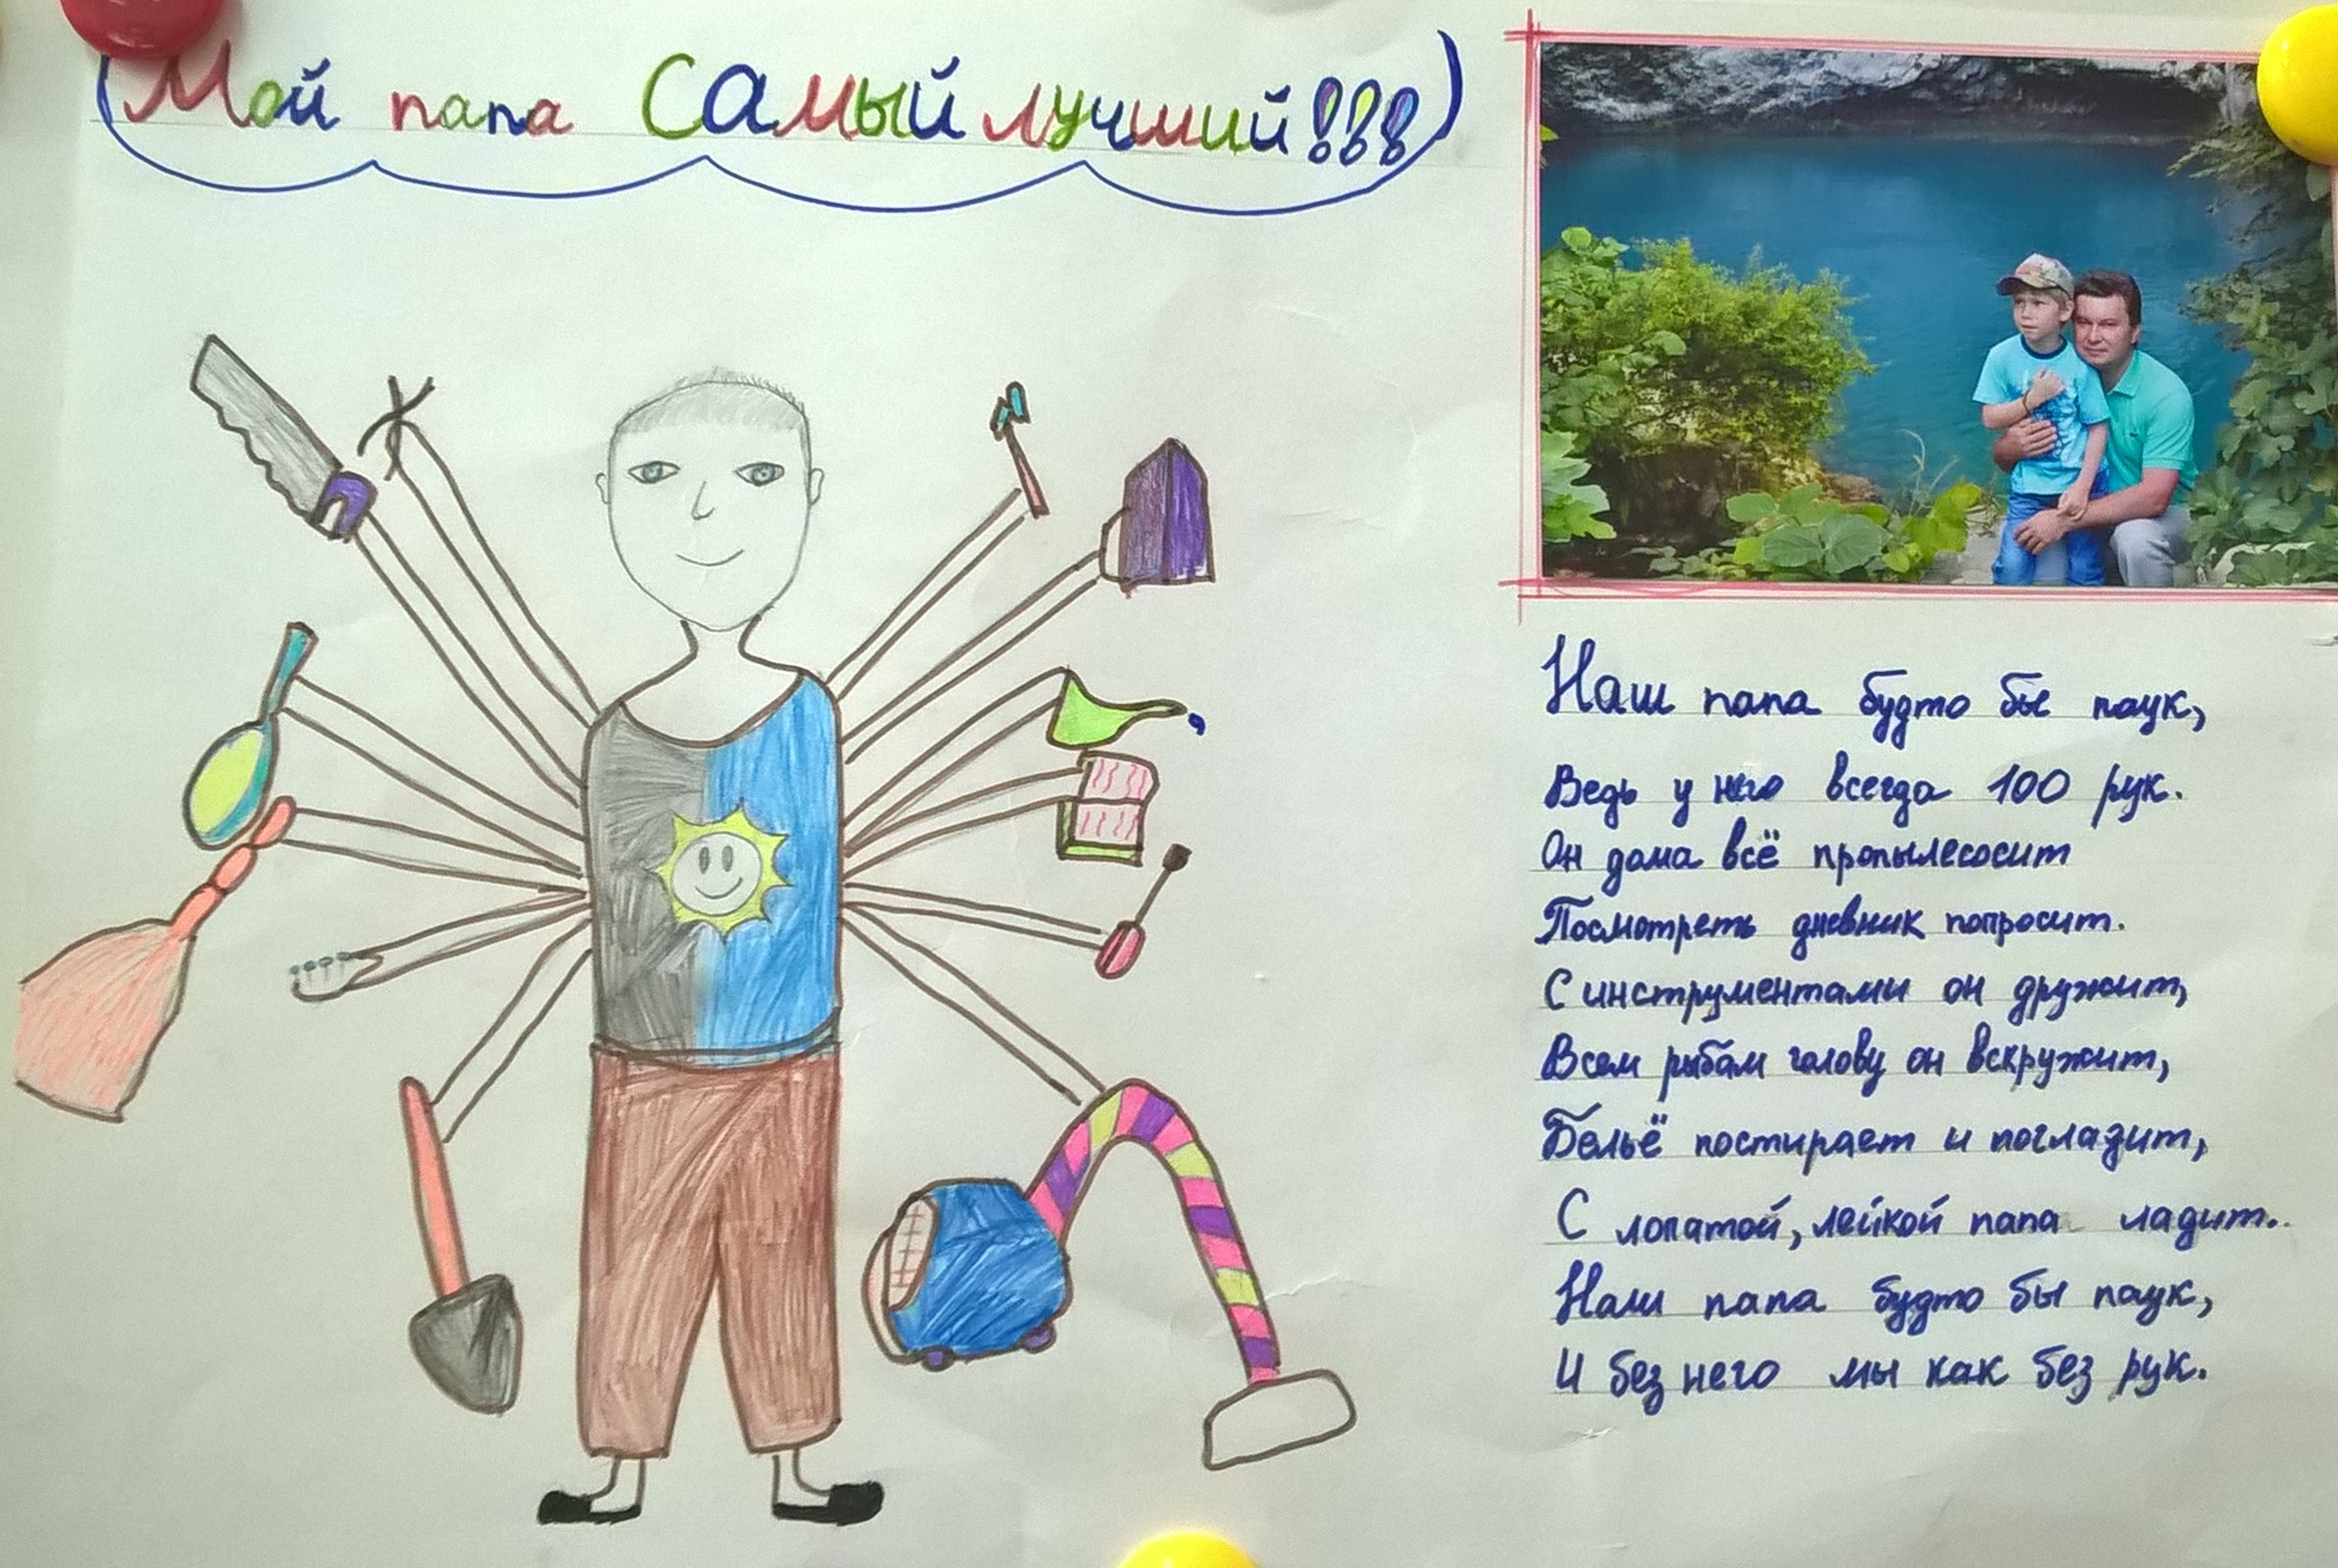 Мой папа Самый лучший!!!
Наш папа будто бы паук,
Ведь у него всегда 100 рук.
Он дома всё пропылесосит
Посмотреть дневник попросит.
С инструментами он дружит,
Всем рыбам голову он вскружит,
Бельё постирает и погладит,
С лопатой, лейкой папа ладит..
Наш папа будто бы паук,
И без него мы как без рук.